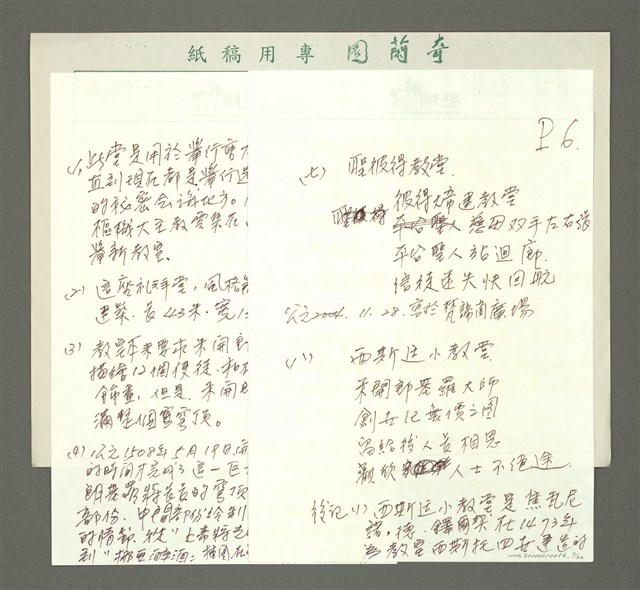 奇蘭園專用稿紙
P 6.
(七) 聖彼得教堂
彼得締建教堂
聖人慈母双手左右張
平台聖人站迴廊
信徒迷失快回航
公元2004. 11. 28. 寫於梵諦崗廣場
(八) 西斯廷小教堂
米開郎基羅大師
創世記無價之圖
留給後人長相思
觀欣 人士不絕途
後記(1) 西斯廷小教堂是焦瓦尼
諾·德·鐸爾契在1473年
為教皇西斯托四世建造的
(1) 此堂是用於舉行
直到現在都是舉行
的秘密会議地方。
樞機大主教雲集在
舉新教皇。
(2) 這座礼拜堂，風格
建築. 長43米·寬1
(3) 教皇本來要求米開郎
描繪12個使徒. 和
飾畫，但是. 米開
滿整個穹頂。
(4) 公元1508年5月19日
的時間才完成了這一巨
朗基羅將長長的穹頂
部份. 中間部份繪制
的情節. 從"上帝將光
到"挪亞醉酒